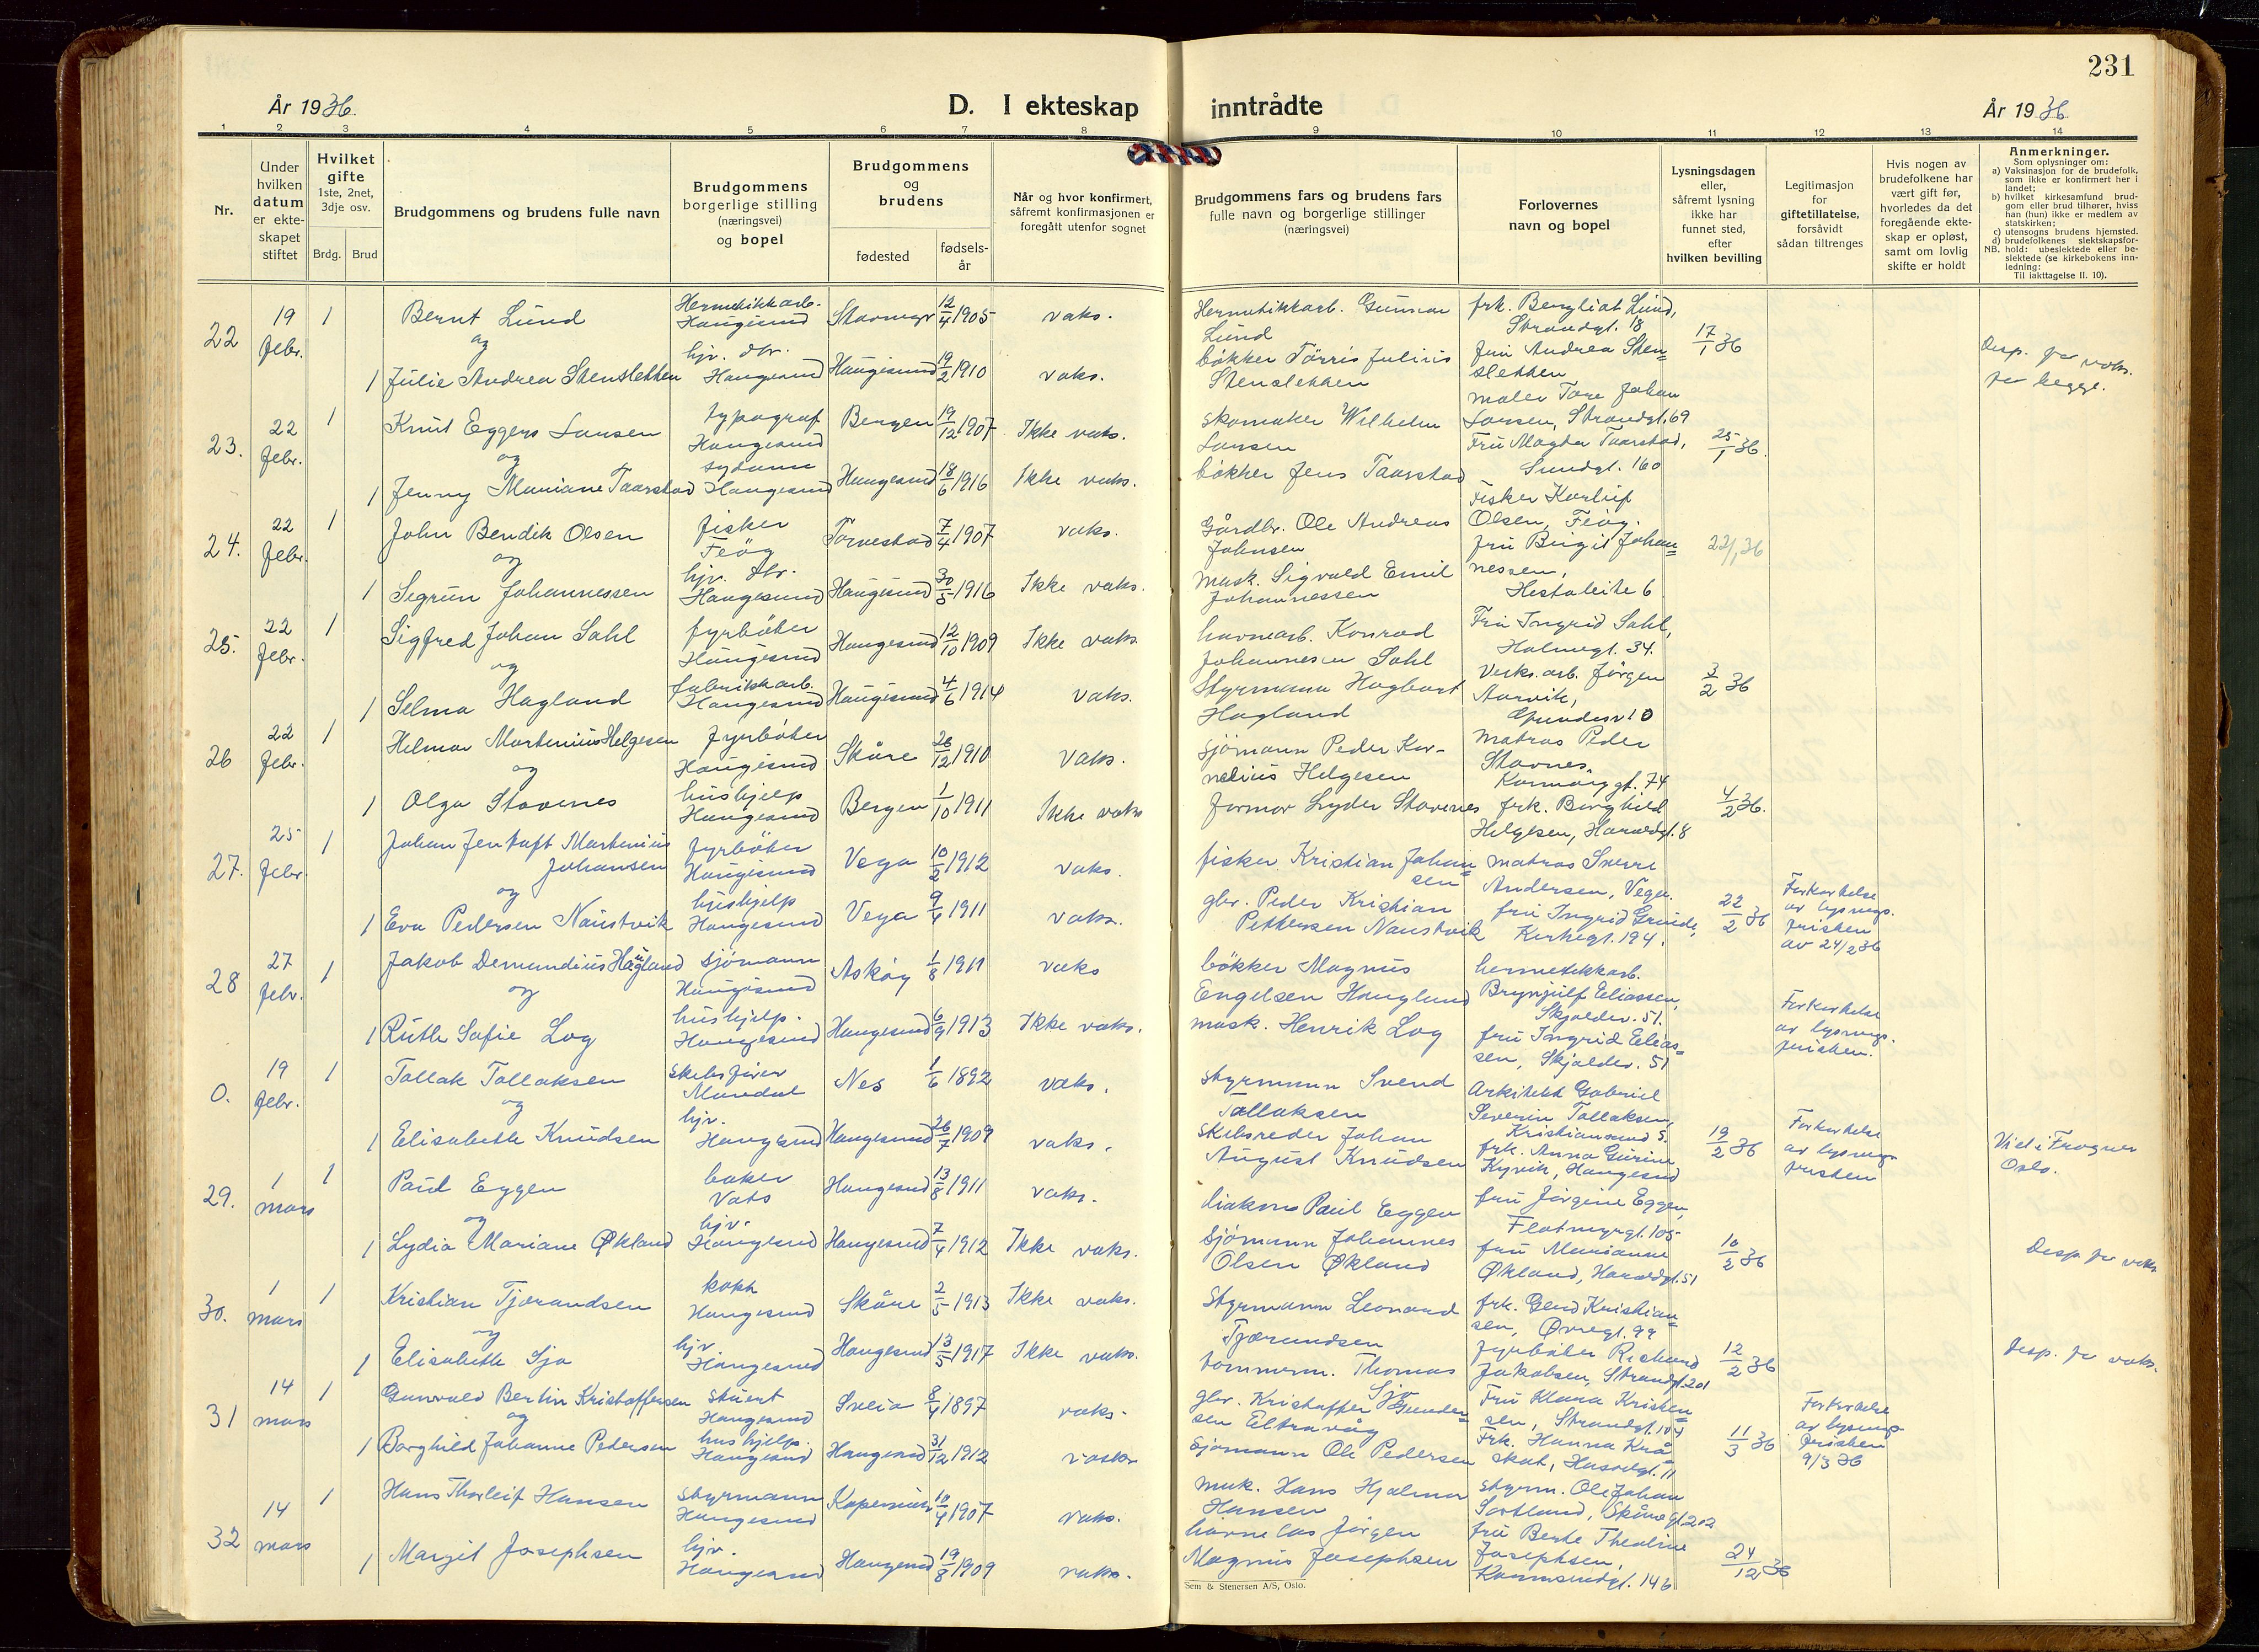 231
År 1936.
D. I ekteskap inntrådte
År 1936
1 2 3 4 5 6 7 8 9 10 11 12 13 14
Nr.
Under hvilken datum er ekteskapet stiftet
Hvilket gifte
1ste, 2net, 3dje osv.
Brdg. Brud
Brudgommens og brudens fulle navn
Brudgommens borgerlige stilling (næringsvei) og bopel
Brudgommens og brudens
fødested
fødselsår
Når og hvor konfirmert, såfremt konfirmasjonen er foregått utenfor sognet
Brudgommens fars og brudens fars fulle navn og borgerlige stillinger (næringsvei)
Forlovernes navn og bopel
Lysningsdagen eller, såfremt lysning ikke har funnet sted, efter hvilken bevilling
Legitimasjon for giftetillatelse, forsåvidt sådan tiltrenges
Hvis nogen av brudefolkene har vært gift før, hvorledes da det foregående ekteskap er opløst, samt om lovlig skifte er holdt
Anmerkninger.
Som oplysninger om:
a) Vaksinasjon for de brudefolk, som ikke er konfirmert her i landet;
b) hvilket kirkesamfund brudgom eller brud tilhører, hviss han (hun) ikke er medlem av statskirken;
c) utensogns brudens hjemsted.
d) brudefolkenes slektskapsforhold: ubeslektede eller beslektede (se kirkebokens innledning:
NB. Til iakttagelse II. 10).
22 19 febr. 1 Bernt Lund Hermetikkarb. Haugesund Stavanger 12/4 1905 vaks. Hermetikkarb. Gunnar Lund frk. Bergliot Lund, Strandgt. 18 17/1 36
og
1 Julie Andrea Stensletten hjv. dtr. Haugesund Haugesund 19/2 1910 vaks. bøkker Tørris Julius Stensletten fru Andrea Stensletten Desp. for vaks. for begge.
23. 22 febr. 1 Knut Eggers Larsen typograf Haugesund Bergen 19/12 1907 Ikke vaks. skomaker Wilhelm Larsen maler Tore Johan Larsen, Strandgt. 69 25/1 36.
og
1 Jenny Mariane Taarstad sydame Haugesund Haugesund 18/6 1916 Ikke vaks. bøkker Jens Taarstad Fru Magda Taarstad, Sundgt. 160
24. 22 febr. 1 John Bendik Olsen fisker Feøy Torvestad 7/4 1907 vaks. Gårdbr. Ole Andreas Johnsen Fisker Karluf Olsen, Feøy. 22/1 36
og
1 Sigrun Johannessen hjv. dtr. Haugesund Haugesund 30/5 1916 Ikke vaks. mask. Sigvald Emil Johannessen fru Birgit Johannessen, Hestaleite 6
25. 22 febr. 1 Sigfred Johan Sahl fyrbøter Haugesund Haugesund 12/10 1909 Ikke vaks. havnearb. Konrad Johannesen Sahl Fru Ingrid Sahl, Holmegt. 34.
og
1 Selma Hagland fabrikkarb. Haugesund Haugesund 4/6 1914 vaks. Styrmann Hagbart Hagland Verks.arb. Jørgen Aarvik, 3/2 36
26 22 febr. 1 Helmar Martinius Helgesen fyrbøter Haugesund Skåre 26/12 1910 vaks. sjømann Peder Kornelius Helgesen matros Peder Stavnes, Karmøygt. 74
og
1 Olga Stavenes hushjelp Haugesund Bergen 1/10 1911 Ikke vaks formor Lyder Stavenes frk. Borghild Helgesen, Haraldgt. 8 4/2 36.
27. 25 febr. 1 Johan Jentoft Martinius Johansen fyrbøter Haugesund Vega 10/2 1912 vaks. fisker Kristian Johansen matros Sverre Andersen, Vega.
og
1 Eva Pedersen Naustvik hushjelp Haugesund Vega 9/4 1911 vaks. gbr. Peder Kristian Pettersen Naustvik fru Ingrid Grinde, Kirkegt. 194. 22/2 36 Forkortelse av lysnings. fristen av 24/2 36
28 27 febr. 1 Jakob Demundius Haugland sjømann Haugesund Askøy 1/8 1911 vaks bøkker Magnus Engelsen Haugland hermetikkarb. Brynjulf Eliassen, Skjoldev. 51.
og
1 Ruth Sofie Log hushjelp. Haugesund Haugesund 6/9 1913 Ikke vaks. mask. Henrik Log fru Ingrid Eliassen, Skjoldev. 51 Forkortelse av lysnings. fristen.
0. 19 febr. 1 Tallak Tallaksen skibsfører Mandal Nes 1/6 1892 vaks. styrmann Svend Tallaksen Arkitekt Gabriel Severin Tallaksen, Kristiansand S.
og
1 Elisabeth Knudsen hjv. Haugesund Haugesund 26/7 1909 vaks. Skibsreder Johan August Knudsen frk. Anna Gurine Kyvik, Haugesund 19/2 36 Forkortelse av lysnings fristen Viet i Frogner Oslo.
29. 1 mars 1 Paul Eggen baker Vats Haugesund 13/8 1911 vaks. diakon Paul Eggen fru Jørgine Eggen, Flotmyrgt. 105
og
1 Lydia Mariane Økland hjv. Haugesund Haugesund 7/4 1912 Ikke vaks. Sjømann Johannes Olsen Økland fru Marianne Økland, Haraldgt. 51 10/2 36 Desp. for vaks
30. 1 mars 1 Kristian Tjørandsen kokk Haugesund Skåre 2/5 1913 Ikke vaks. Styrmann Leonard Tjørandsen frk. Gerd Kristiansen, Øvregt. 99
og
1 Elisabeth Sjo hjv Haugesund Haugesund 13/5 1917 Ikke vaks. tømmerm. Thomas Sjo fyrbøter Rikard Jakobsen, Strandgt. 201 12/2 36 Desp. for vaks.
31 14 mars 1 Gunvald Bertin Kristoffersen stuert Haugesund Sveio 8/4 1897 vaks. gbr. Kristoffer Gundersen Eltravåg Fru Klara Kristensen, Strandgt. 104
og
1 Borghild Johanne Pedersen hushjelp. Haugesund Haugesund 31/12 1912 vaks Sjømann Ole Pedersen Frk. Hanna Kråskat, Hasselgt. 11 11/3 36 Forkortelse av lysnings fristen 9/3 36
32 14 mars 1 Hans Thorleif Hansen styrmann Haugesund Kopervik 10/4 1907 vaks. mask. Hans Hjalmar Hansen styrm. Ole Johan Sortland, Skåregt 202
1 Margit Josephsen hjv. Haugesund Haugesund 19/8 1909 vaks. havnelos Jørgen Magnus Josephsen fru Berte Theoline Josephsen, Karmsundgt. 146 24/12 36
Sem & Stenersen A/S, Oslo.